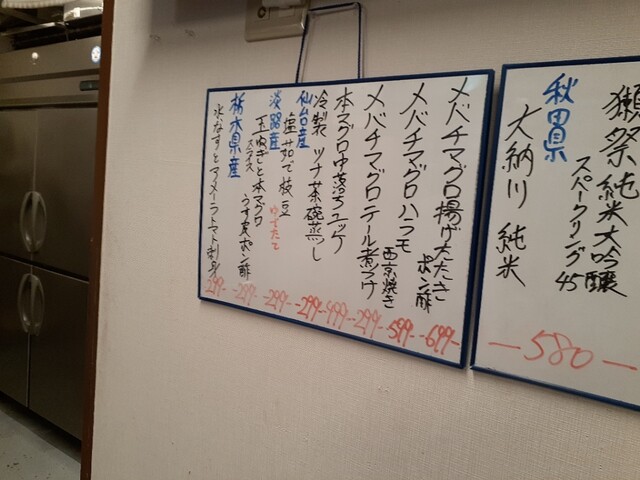 獺祭 純米大吟醸
スパークリング45
秋田県
大納川 純米
580
メバチマグロ揚げたたき
ポン酢
699
メバチマグロハラモ
西京焼き
599
メバチマグロテール煮つけ
299
本マグロ中落ちユッケ
499
冷製 ツナ茶碗蒸し
299
仙台産
塩茹で枝豆
ゆでたて
299
淡路産
玉ねぎと本マグロ
スライス
うす皮ポン酢
299
栃木県産
水なすとアメーラトマト刺身
299